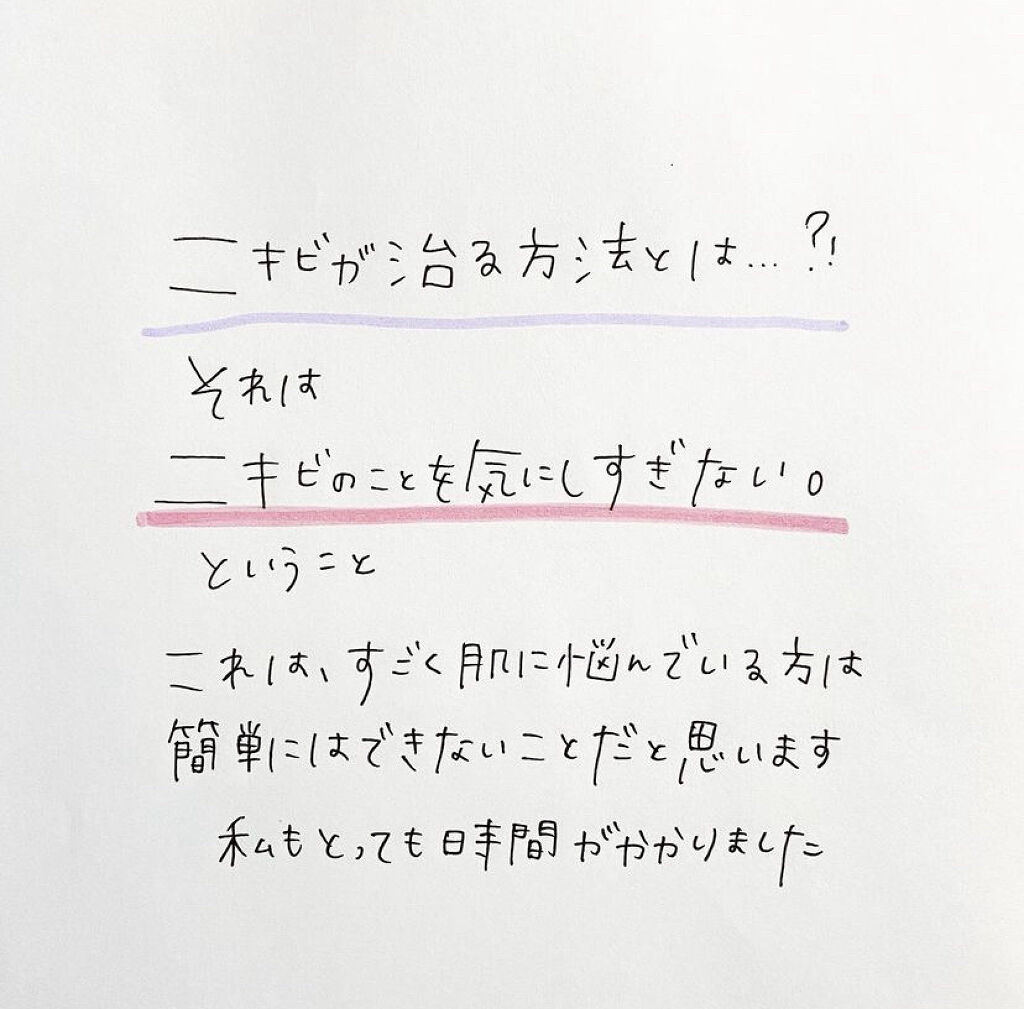 ニキビが治る方法とは…?!
それは
ニキビのことを気にしすぎない。
ということ
これは、すごく肌に悩んでいる方は
簡単にはできないことだと思います
私もとっても時間がかかりました